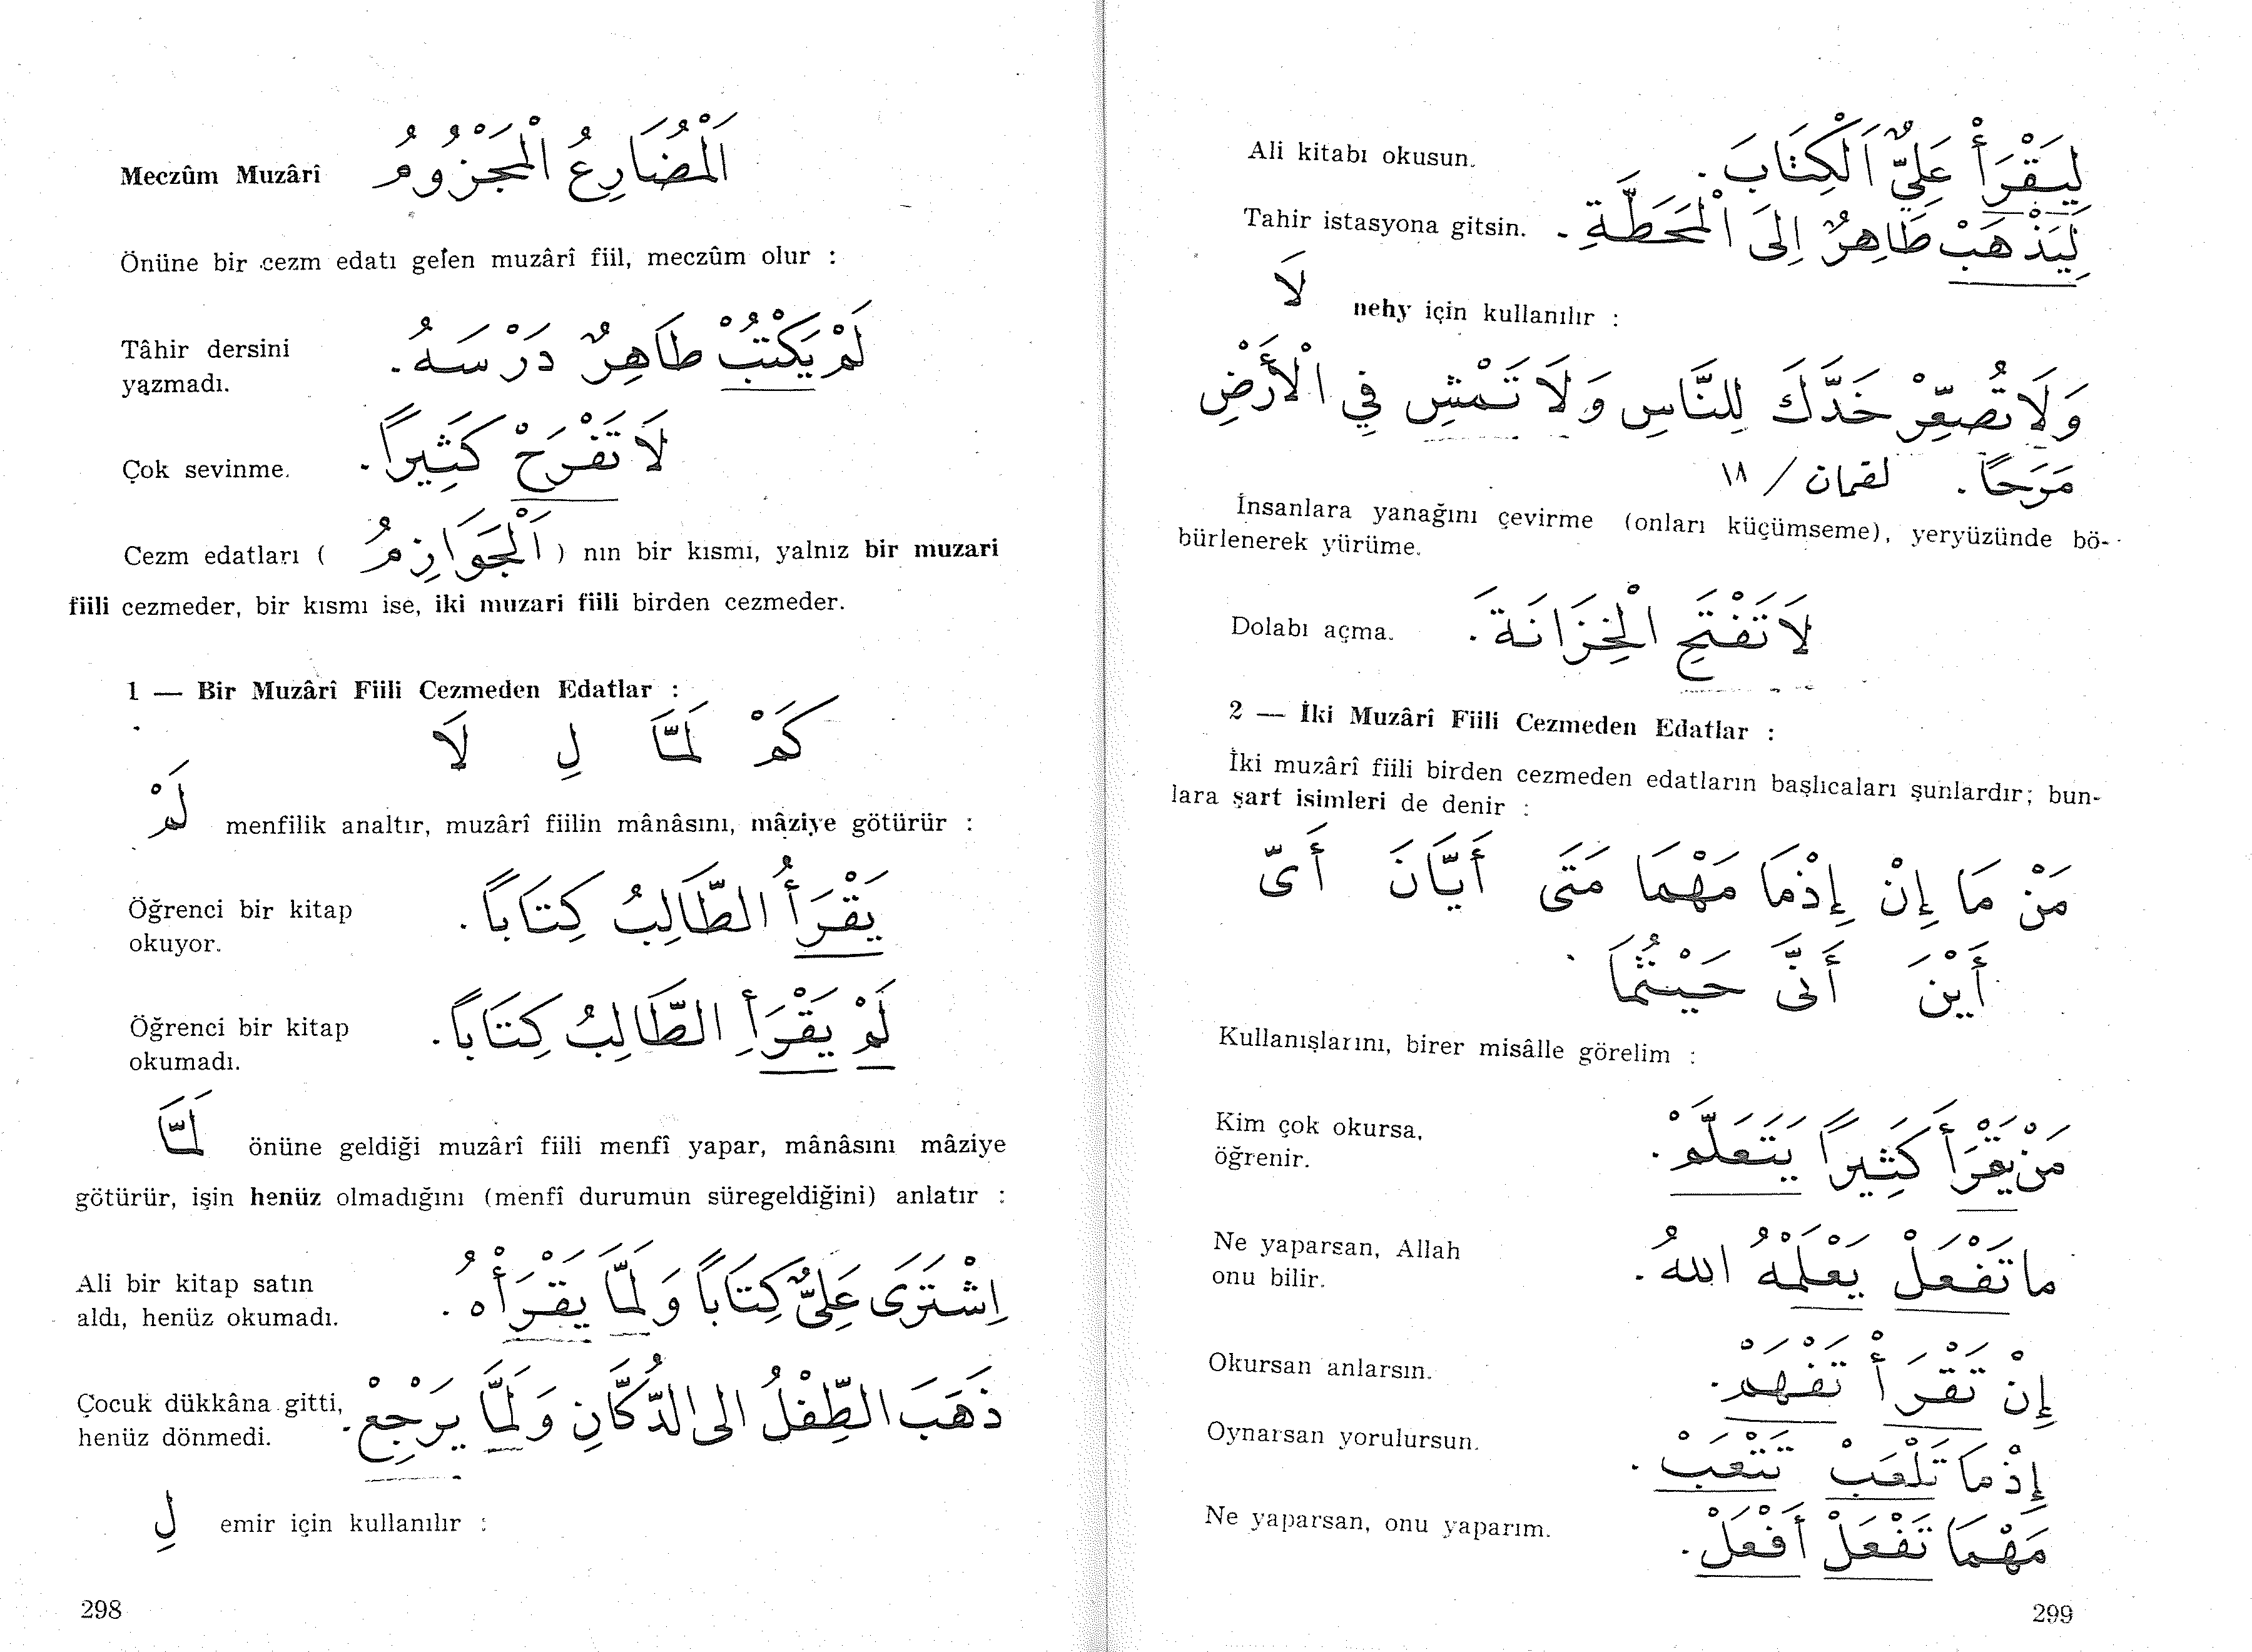 Meczûm Muzârî اَلْمُضَارِعُ الْمَجْزُومُ
Önüne bir cezm edatı gelen muzârî fiil, meczûm olur :
Tâhir dersini لَمْ يَكْتُبْ طَاهِرٌ دَرْسَهُ.
yazmadı.
Çok sevinme. لَا تَفْرَحْ كَثِيراً.
Cezm edatları ( اَلْجَوَازِمُ ) nın bir kısmı, yalnız bir muzari
fiili cezmeder, bir kısmı ise, iki muzari fiili birden cezmeder.
1 — Bir Muzârî Fiili Cezmeden Edatlar :
لَمْ لَمَّا لِ لَا
لَمْ menfilik analtır, muzârî fiilin mânâsını, mâziye götürür :
Öğrenci bir kitap يَقْرَأُ الطَّالِبُ كِتَاباً.
okuyor.
Öğrenci bir kitap لَمْ يَقْرَأِ الطَّالِبُ كِتَاباً.
okumadı.
لَمَّا önüne geldiği muzârî fiili menfî yapar, mânâsını mâziye
götürür, işin henüz olmadığını (menfî durumun süregeldiğini) anlatır :
Ali bir kitap satın اِشْتَرَى عَلِيٌّ كِتَاباً وَلَمَّا يَقْرَأْهُ.
aldı, henüz okumadı.
Çocuk dükkâna gitti, ذَهَبَ الطِّفْلُ الى الدُّكَّانِ وَلَمَّا يَرْجِعْ.
henüz dönmedi.
لِ emir için kullanılır :
298
Ali kitabı okusun. لِيَقْرَأْ عَلِيٌّ اَلْكِتَابَ.
Tahir istasyona gitsin. لِيَذْهَبْ طَاهِرٌ إِلَى الْمَحَطَّةِ.
لَا nehy için kullanılır :
وَلَا تُصَعِّرْ خَدَّكَ لِلنَّاسِ وَلَا تَمْشِ فِي الْأَرْضِ
مَرَحًا. لقمان / ١٨
İnsanlara yanağını çevirme (onları küçümseme), yeryüzünde bö-
bürlenerek yürüme.
Dolabı açma. لَا تَفْتَحِ الْخِزَانَةَ.
2 — İki Muzârî Fiili Cezmeden Edatlar :
İki muzârî fiili birden cezmeden edatların başlıcaları şunlardır; bun-
lara şart isimleri de denir :
مَنْ مَا إِنْ إِذْمَا مَهْمَا مَتَى أَيَّانَ أَىّ
أَيْنَ أَنَّى حَيْثُمَا
Kullanışlarını, birer misâlle görelim :
Kim çok okursa, مَنْ يَقْرَأْ كَثِيراً يَتَعَلَّمْ.
öğrenir.
Ne yaparsan, Allah ما تَفْعَلْ يَعْلَمْهُ اللهُ.
onu bilir.
Okursan anlarsın. إِنْ تَقْرَأْ تَفْهَمْ.
Oynarsan yorulursun. إِذْمَا تَلْعَبْ تَتْعَبْ.
Ne yaparsan, onu yaparım. مَهْمَا تَفْعَلْ أَفْعَلْ.
299